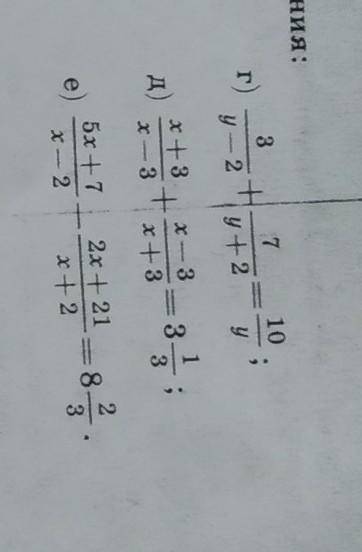 ния:
г) 3/(y − 2) + 7/(y + 2) = 10/y;
д) (x + 3)/(x − 3) + (x − 3)/(x + 3) = 3 1/3;
е) (5x + 7)/(x − 2) − (2x + 21)/(x + 2) = 8 2/3.